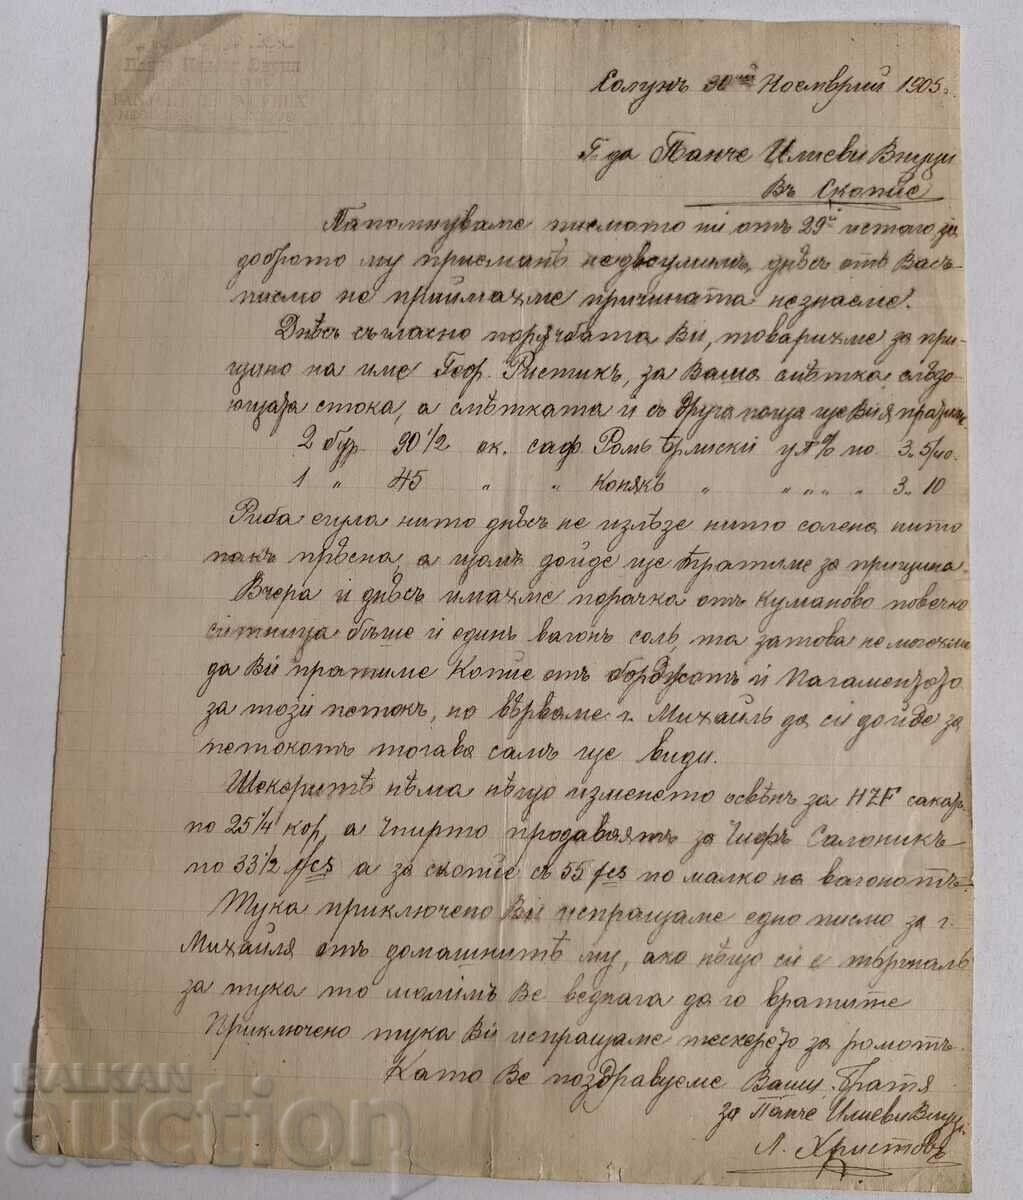 Солунъ 30 Ноемврий 1905.
Г-да Панче Илиеви Внуци
Въ Скопие
Напомнуваме писмото ни отъ 29й истаго за
доброто му приемание недвоумимъ, днѣсъ отъ Васъ
писмо не приймахме причината незнаеме.
Днѣсъ съгласно порѫчбата Ви, товарихме за При-
щино на име Геор. Ристикъ, за Ваша смѣтка слѣдо-
ющата стока, а смѣтката и съ друга поща ще Ви я пратиме
2 бур 90 1/2 ок. саф. Ромъ по 3. 5/10.
1 „ 45 „ „ Конякъ „ „ „ „ „ 3„ 10
Риба нито днѣсъ не излѣзе нито солена нито
пакъ прѣсна, а щомъ дойде ще пратиме за Прищина
Вчера и днѣсъ имахме порачка отъ Куманово повечко
ситница бѣше и единъ вагонъ соль, та затова не можехме
да Ви пратиме Копие отъ и
за този петокъ, но вѣрваме г. Михаилъ да си дойде за
петокотъ тогава самъ ще види.
Шекеритѣ нѣма нѣщо изменето освѣнъ за HZF сакар.
по 25 1/4 кор, а продаватъ за Салоникъ
по 33 1/2 fcs а за скопие съ 55 fcs по малко на вагонотъ
Тука приключено Ви испращаме едно писмо за г.
Михаиля отъ домашнитѣ му, ако нѣщо си е търгналъ
за тука то молимъ Ве веднага да го вратите
Приключено тука Ви испращаме тескерето за ромотъ.
Като Ве поздравуеме Ваши братя
за Панче Илиеви Внуци
Л. Христовъ
BALKAN
auction